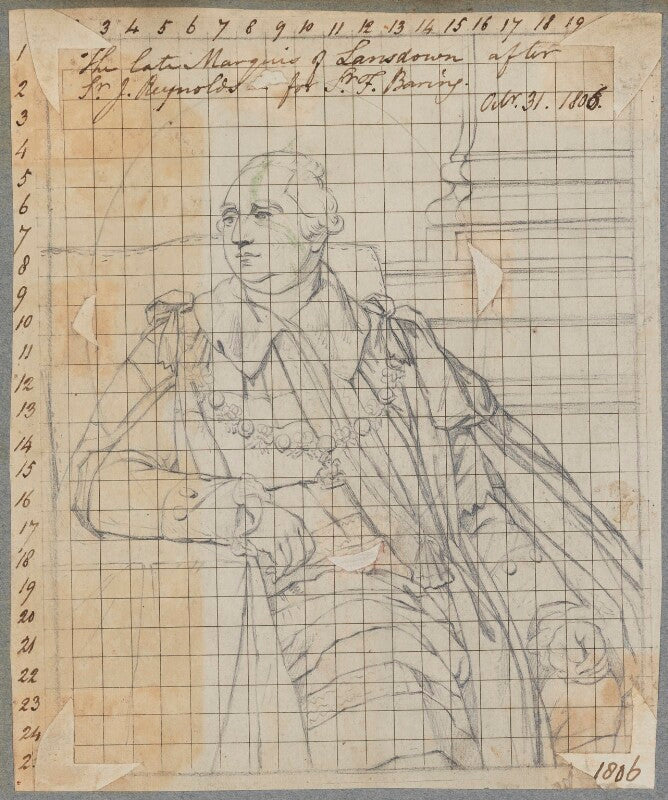 3 4 5 6 7 8 9 10 11 12 13 14 15 16 17 18 19
The late Marquis of Lansdown after
Sr. J. Reynolds for Sr. F. Baring.
Octr. 31. 1806.
1
2
3
4
5
6
7
8
9
10
11
12
13
14
15
16
17
18
19
20
21
22
23
24
2
1806